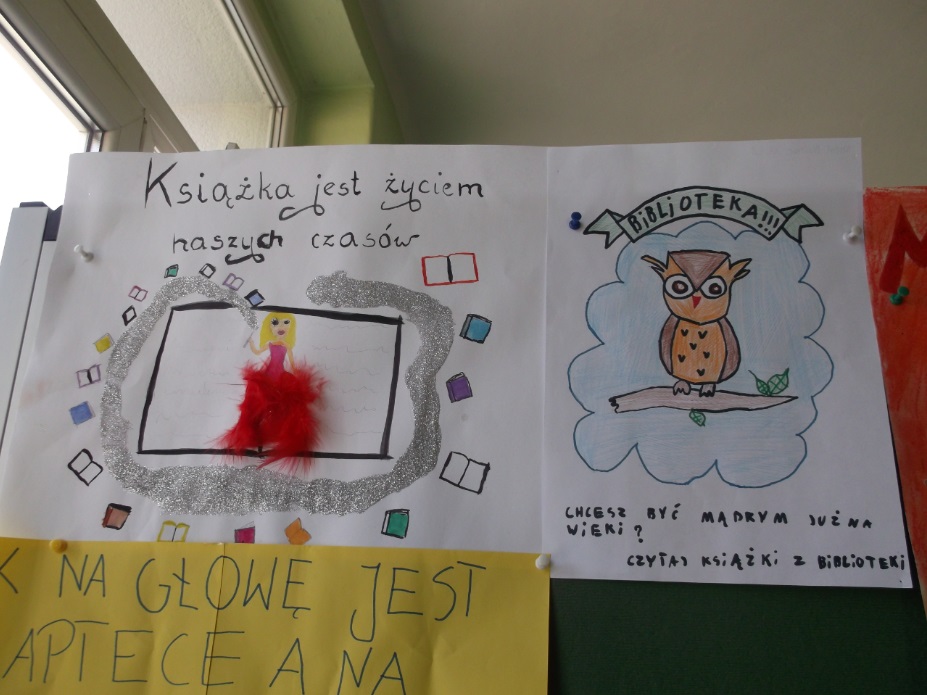 Książka jest życiem
naszych czasów
BiBLjOTEKA!!!
CHCESZ BYĆ MĄDRYM JUŻ NA
WIEKI?
CZYTAJ KSIĄŻKI Z BIBLIOTEKI
K NA GŁOWĘ JEST
APTECE A NA